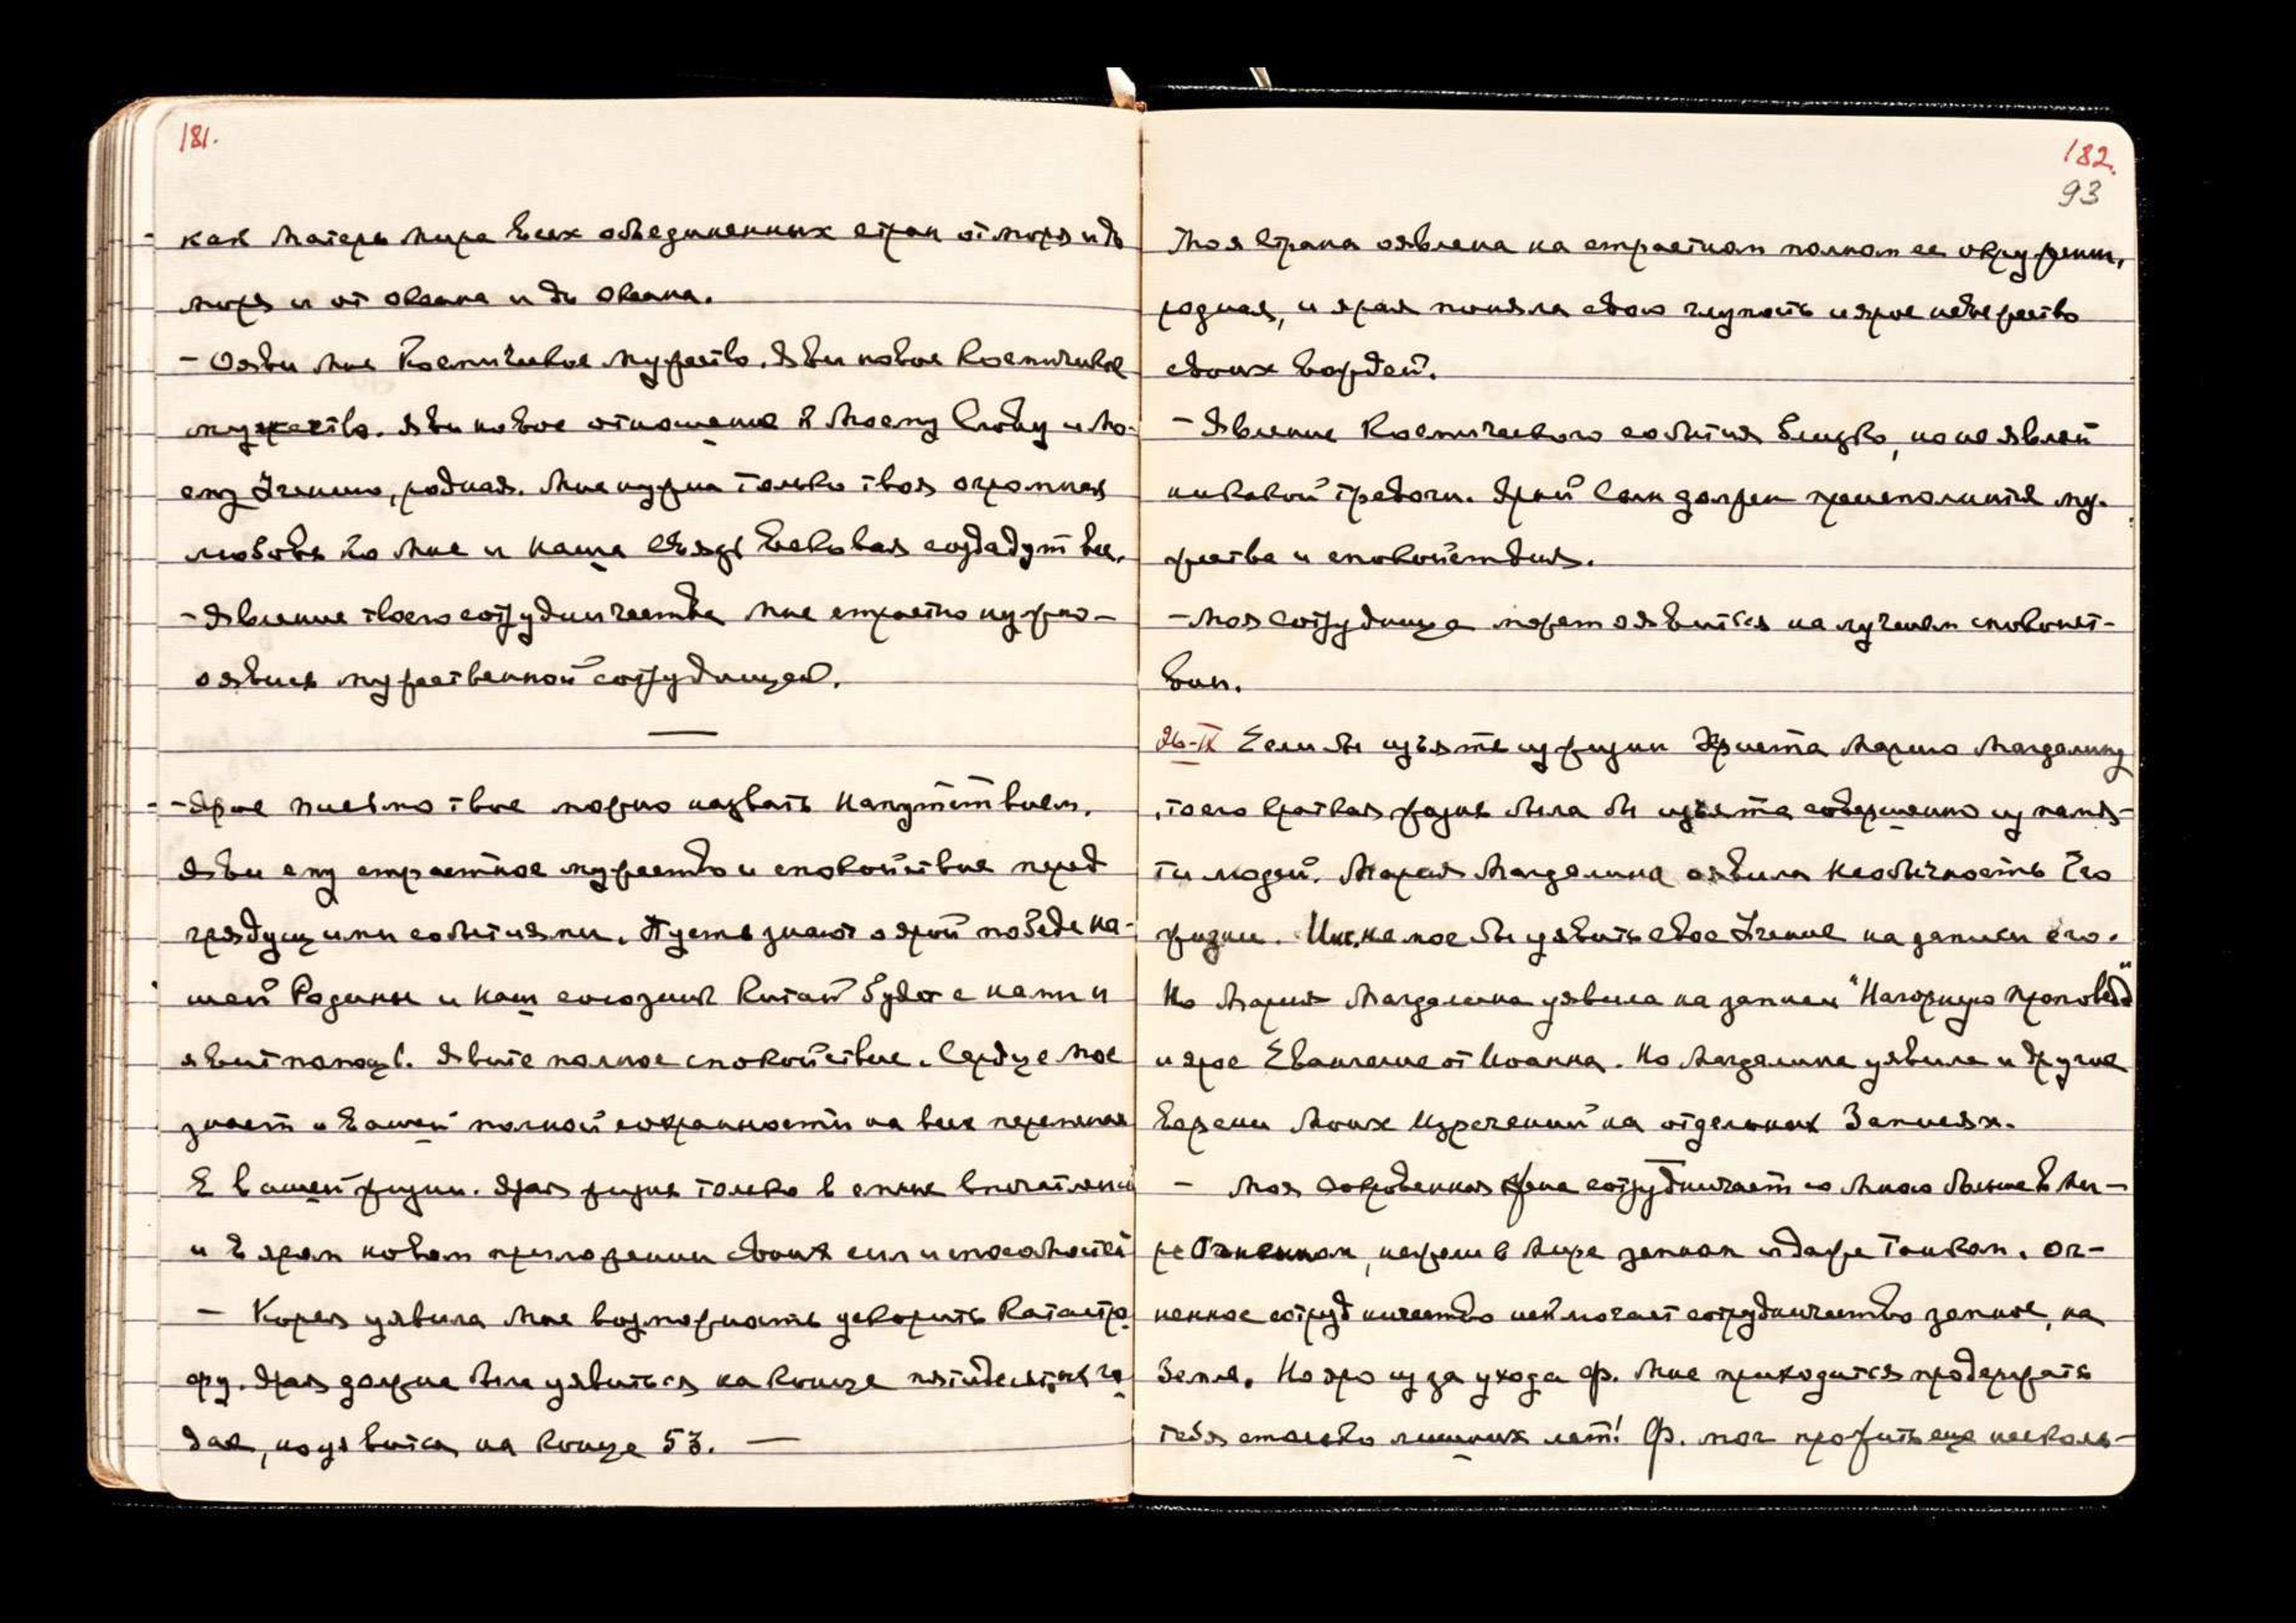 181.
как Матерь Мира Всех объединенных стран от моря и до
моря и от Океана и до Океана.
- Ояви Мне Космическое мужество. Яви новое Космическое
мужество. Яви новое отношение к Моему Слову и Мо-
ему Учению, родная. Мне нужна только твоя огромная
любовь ко Мне и наша Связь Вековая создадут все.
- Явление твоего сотрудничества Мне страстно нужно -
оявись мужественной сотрудницей.
- Ярое письмо твое можно назвать Напутствием.
Яви ему страстное мужество и спокойствие перед
грядущими событиями. Пусть знают о ярой победе на-
шей Родины и наш союзник Китай будет с нами и
явит помощь. Явите полное спокойствие. Сердце Мое
знает о Вашей полной сохранности на всех переменах
в вашей жизни. Ярая жизнь только в смене впечатлений
и в яром новом приложении своих сил и способностей
- Корея уявила Мне возможность ускорить Катастро
фу. Ярая должна была уявиться на конце пятидесятых го
дах, но уявится на конце 53. —
182.
93
Моя Страна оявлена на страстном полном ее окружении,
родная, и ярая поняла свою глупость и ярое невежество
своих вождей.
- Явление Космического события близко, но не являй
никакой тревоги. Ярый Сам должен преисполниться му-
жества и спокойствия.
- Моя Сотрудница может оявиться на лучшем спокойст-
вии.
26-IX Если бы изъяте из жизни Христа Марию Магдалину
, то его краткая жизнь была бы изъята совершенно из памя-
ти людей. Мария Магдалина оявила необычность Его
жизни. Иис. не мог бы уявить свое Учение на записи его.
Но Мария Магдалина уявила на записи "Нагорную проповедь"
и ярое Евангелие от Иоанна. Но Магдалина уявила и другие
версии Моих Изречений на отдельных Записях.
- Моя Сокровенная Жена сотрудничает со Мною больше в Ми-
ре Огненном, нежели в Мире земном и даже Тонком. Ог-
ненное сотрудничество исключает сотрудничество земное, на
Земле. Но яро из за ухода Ф. Мне приходится продержать
тебя столько лишних лет! Ф. мог прожить еще несколь-